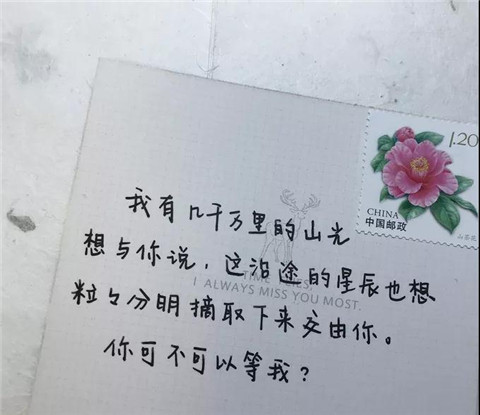 1.20
CHINA
中国邮政
我有几千万里的山光
想与你说，这沿途的星辰也想
TIME FLIES,
I ALWAYS MISS YOU MOST.
粒々分明摘取下来交由你。
你可不可以等我？